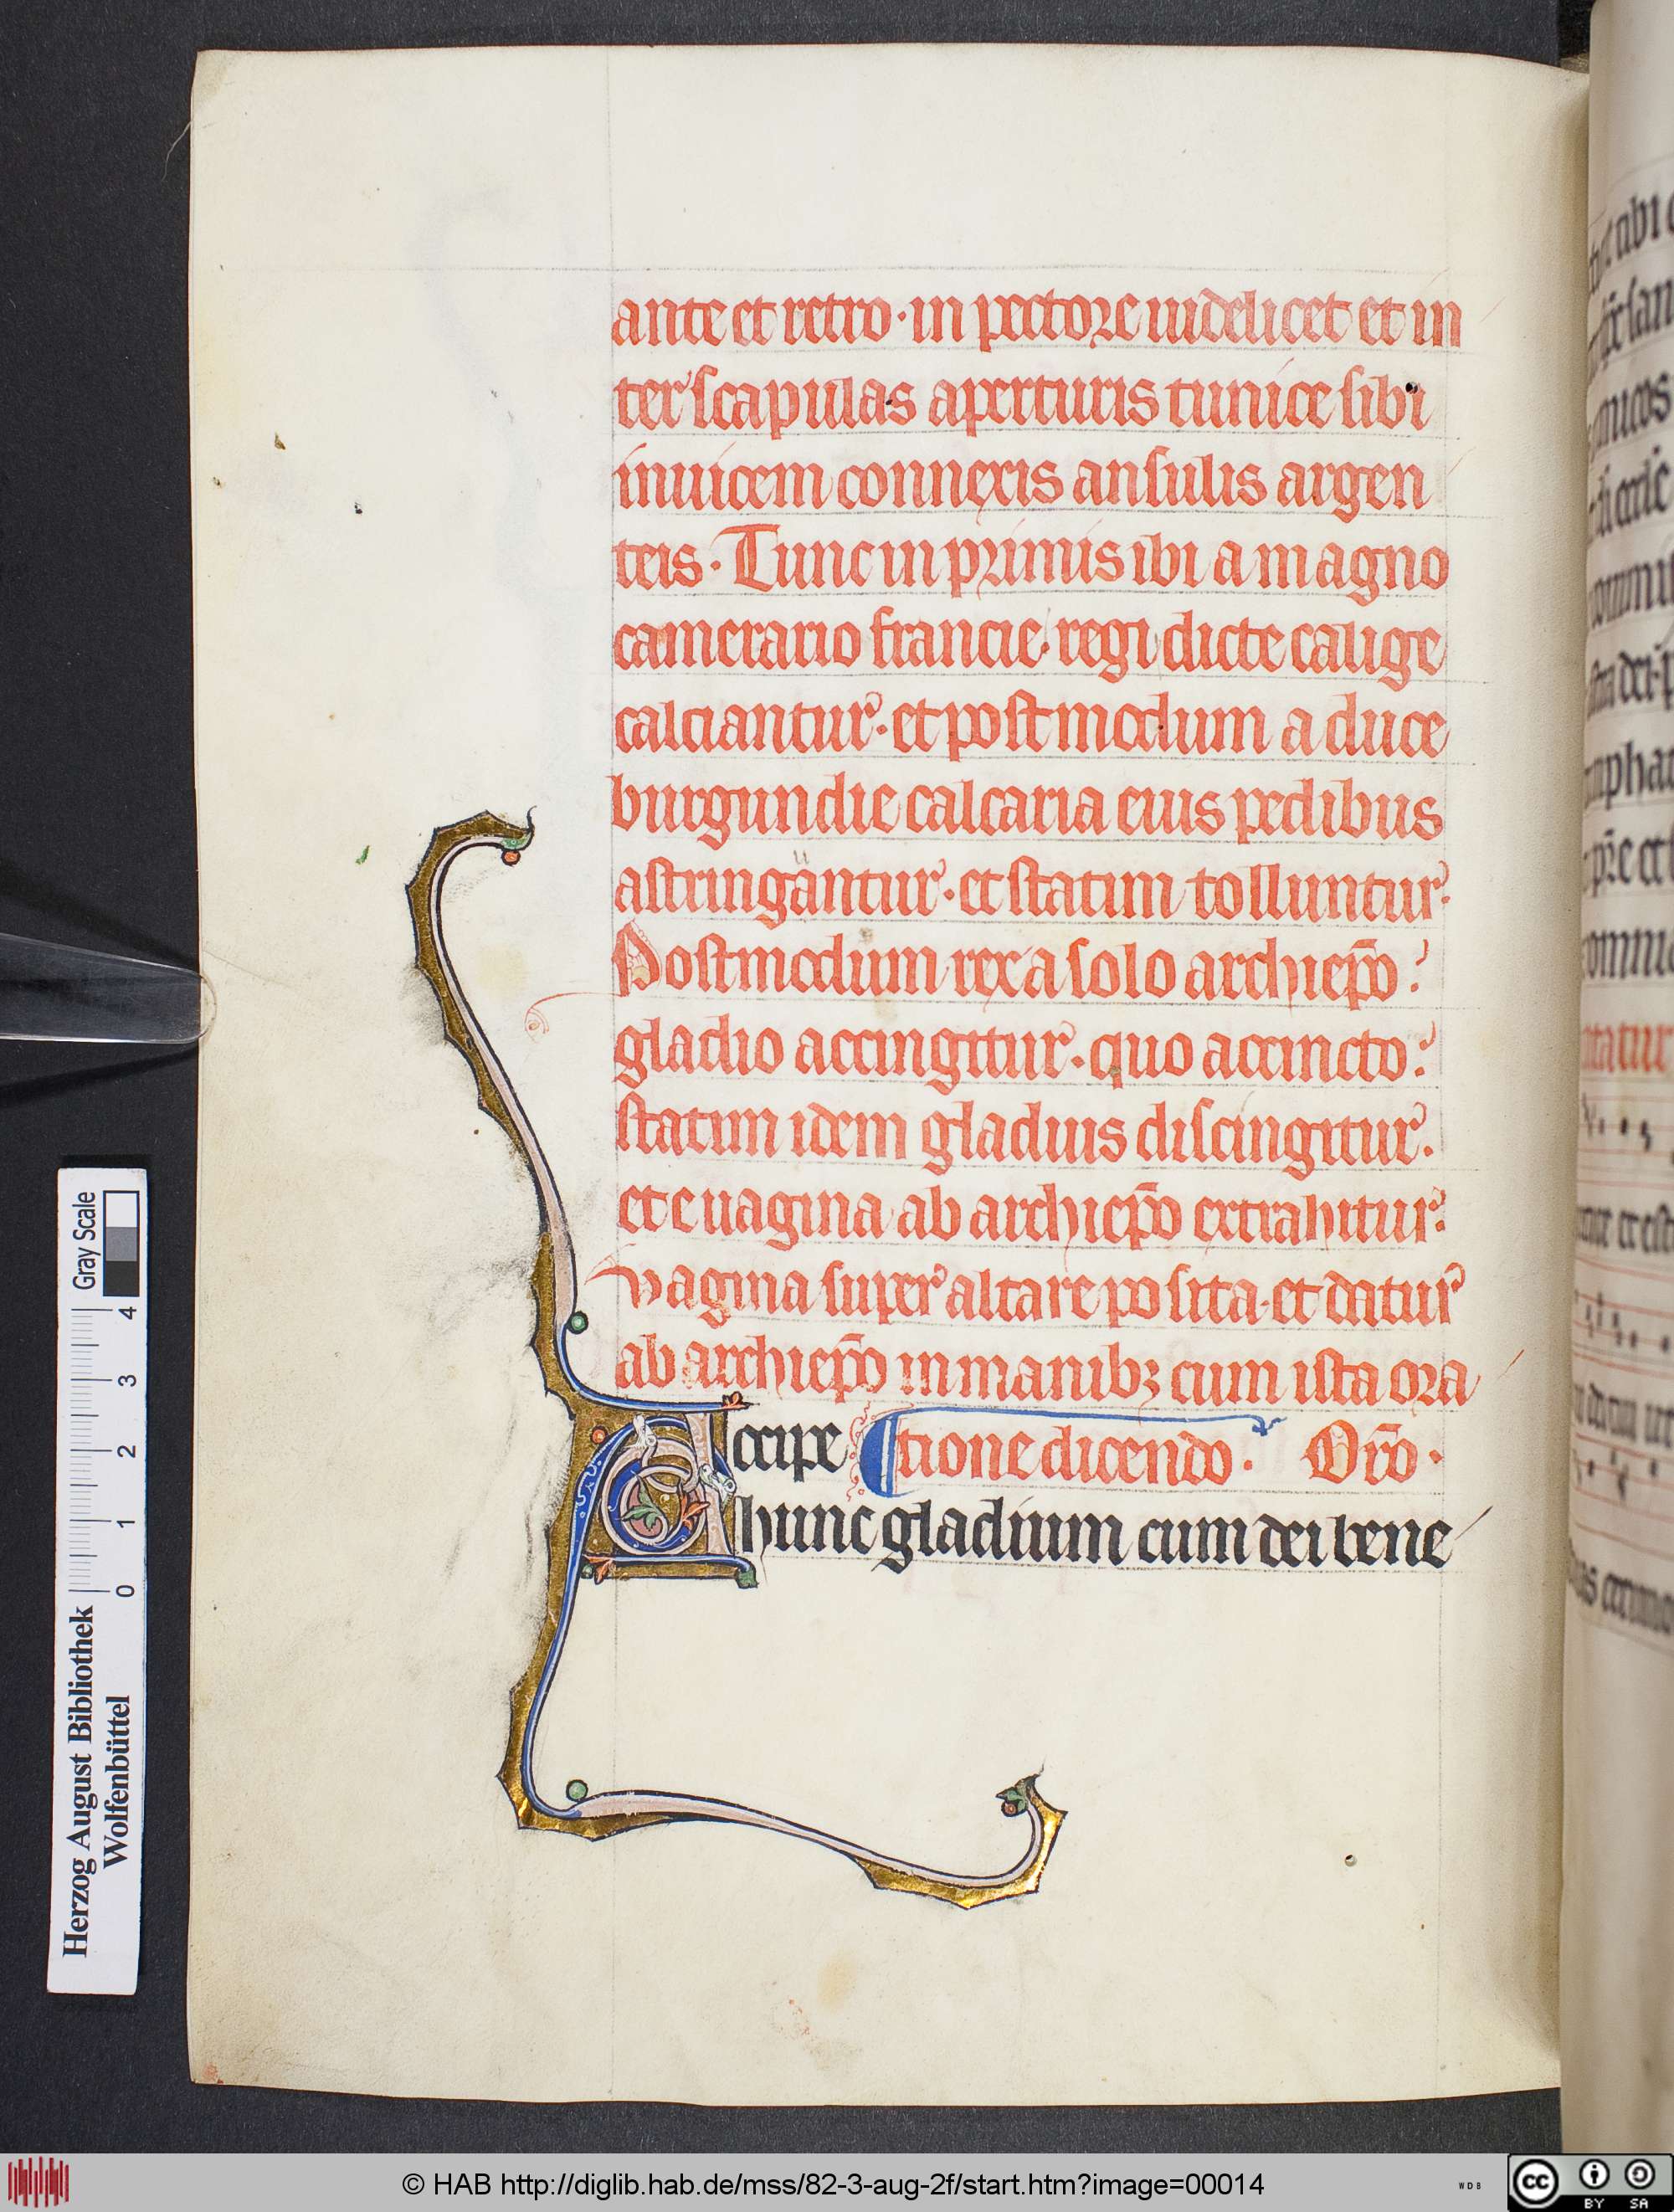 ante et retro · in pectore uidelicet et in
ter scapulas aperturis tunice sibi
inuicem connexis ansulis argen
teis · Tunc in primis ibi a magno
camerario francie · regi dicte calige
calciantur · et postmodum a duce
burgundie calcaria eius pedibus
astringantur · et statim tolluntur ·
Postmodum rex a solo archiep̄o ·
gladio accingitur · quo accincto ·
statim idem gladius discingitur ·
et e uagina ab archiep̄o extrahitur ·
vagina super altare posita · et datur
ab archiep̄o in manibꝫ cum ista ora
Accipe ¶ tione dicendo · Or̄o ·
hunc gladium cum dei bene
Herzog August Bibliothek
Wolfenbüttel
0 1 2 3 4
Gray Scale
© HAB http://diglib.hab.de/mss/82-3-aug-2f/start.htm?image=00014
WDB
cc BY SA